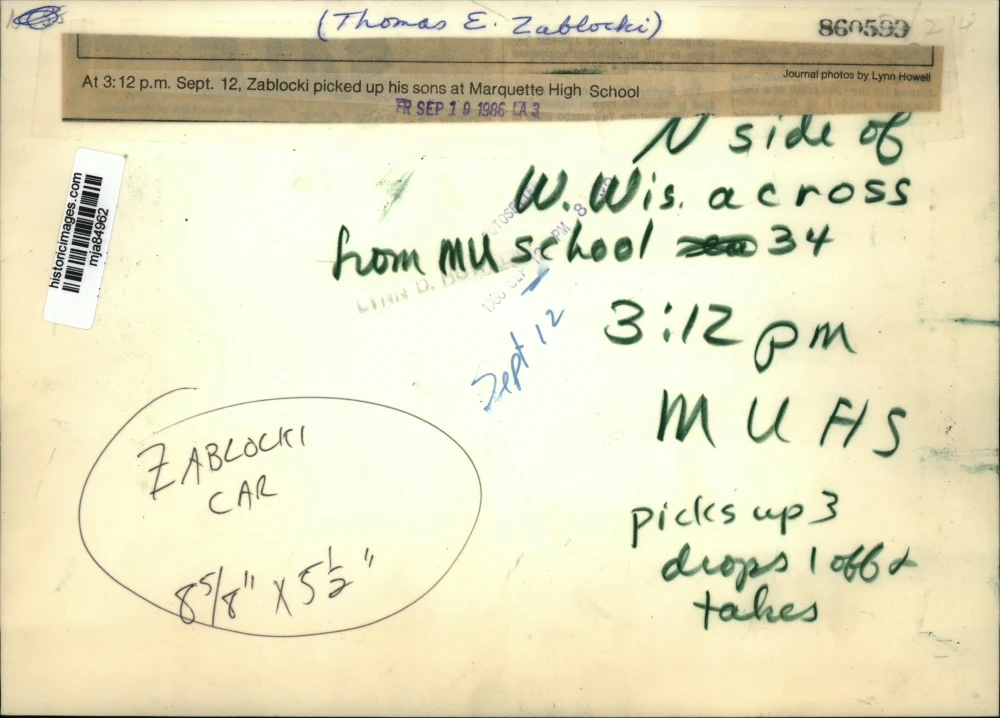 (Thomas E. Zablocki)
860599
Journal photos by Lynn Howell
At 3:12 p.m. Sept. 12, Zablocki picked up his sons at Marquette High School
FR SEP 19 1986 LA 3
N side of
W. Wis. across
from MU school 34
3:12 pm
MUHS
picks up 3
drops 1 off &
takes
Sept 12
LYNN D.
PM 8
historicimages.com
mja84962
ZABLOCKI
CAR
8 5/8" X 5 1/2"